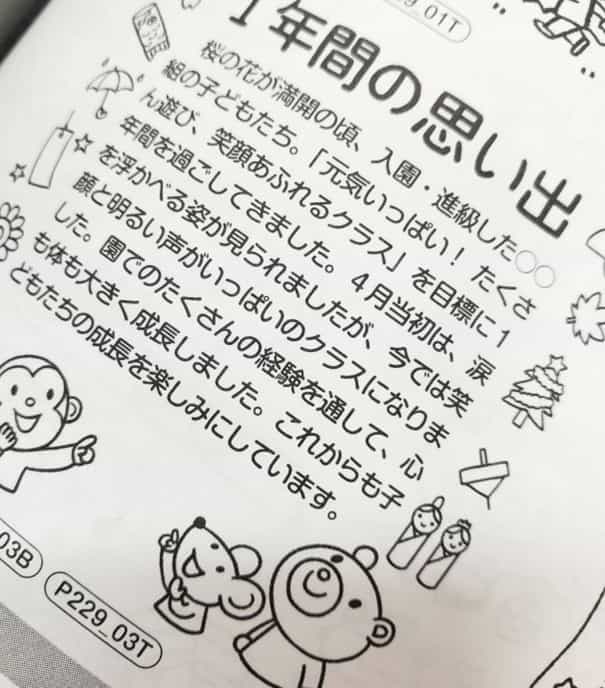 29_01T
1年間の思い出
桜の花が満開の頃、入園・進級した○○
組の子どもたち。「元気いっぱい！ たくさ
ん遊び、笑顔あふれるクラス」を目標に1
年間を過ごしてきました。4月当初は、涙
を浮かべる姿が見られましたが、今では笑
顔と明るい声がいっぱいのクラスになりま
した。園でのたくさんの経験を通して、心
も体も大きく成長しました。これからも子
どもたちの成長を楽しみにしています。
03B
P229_03T